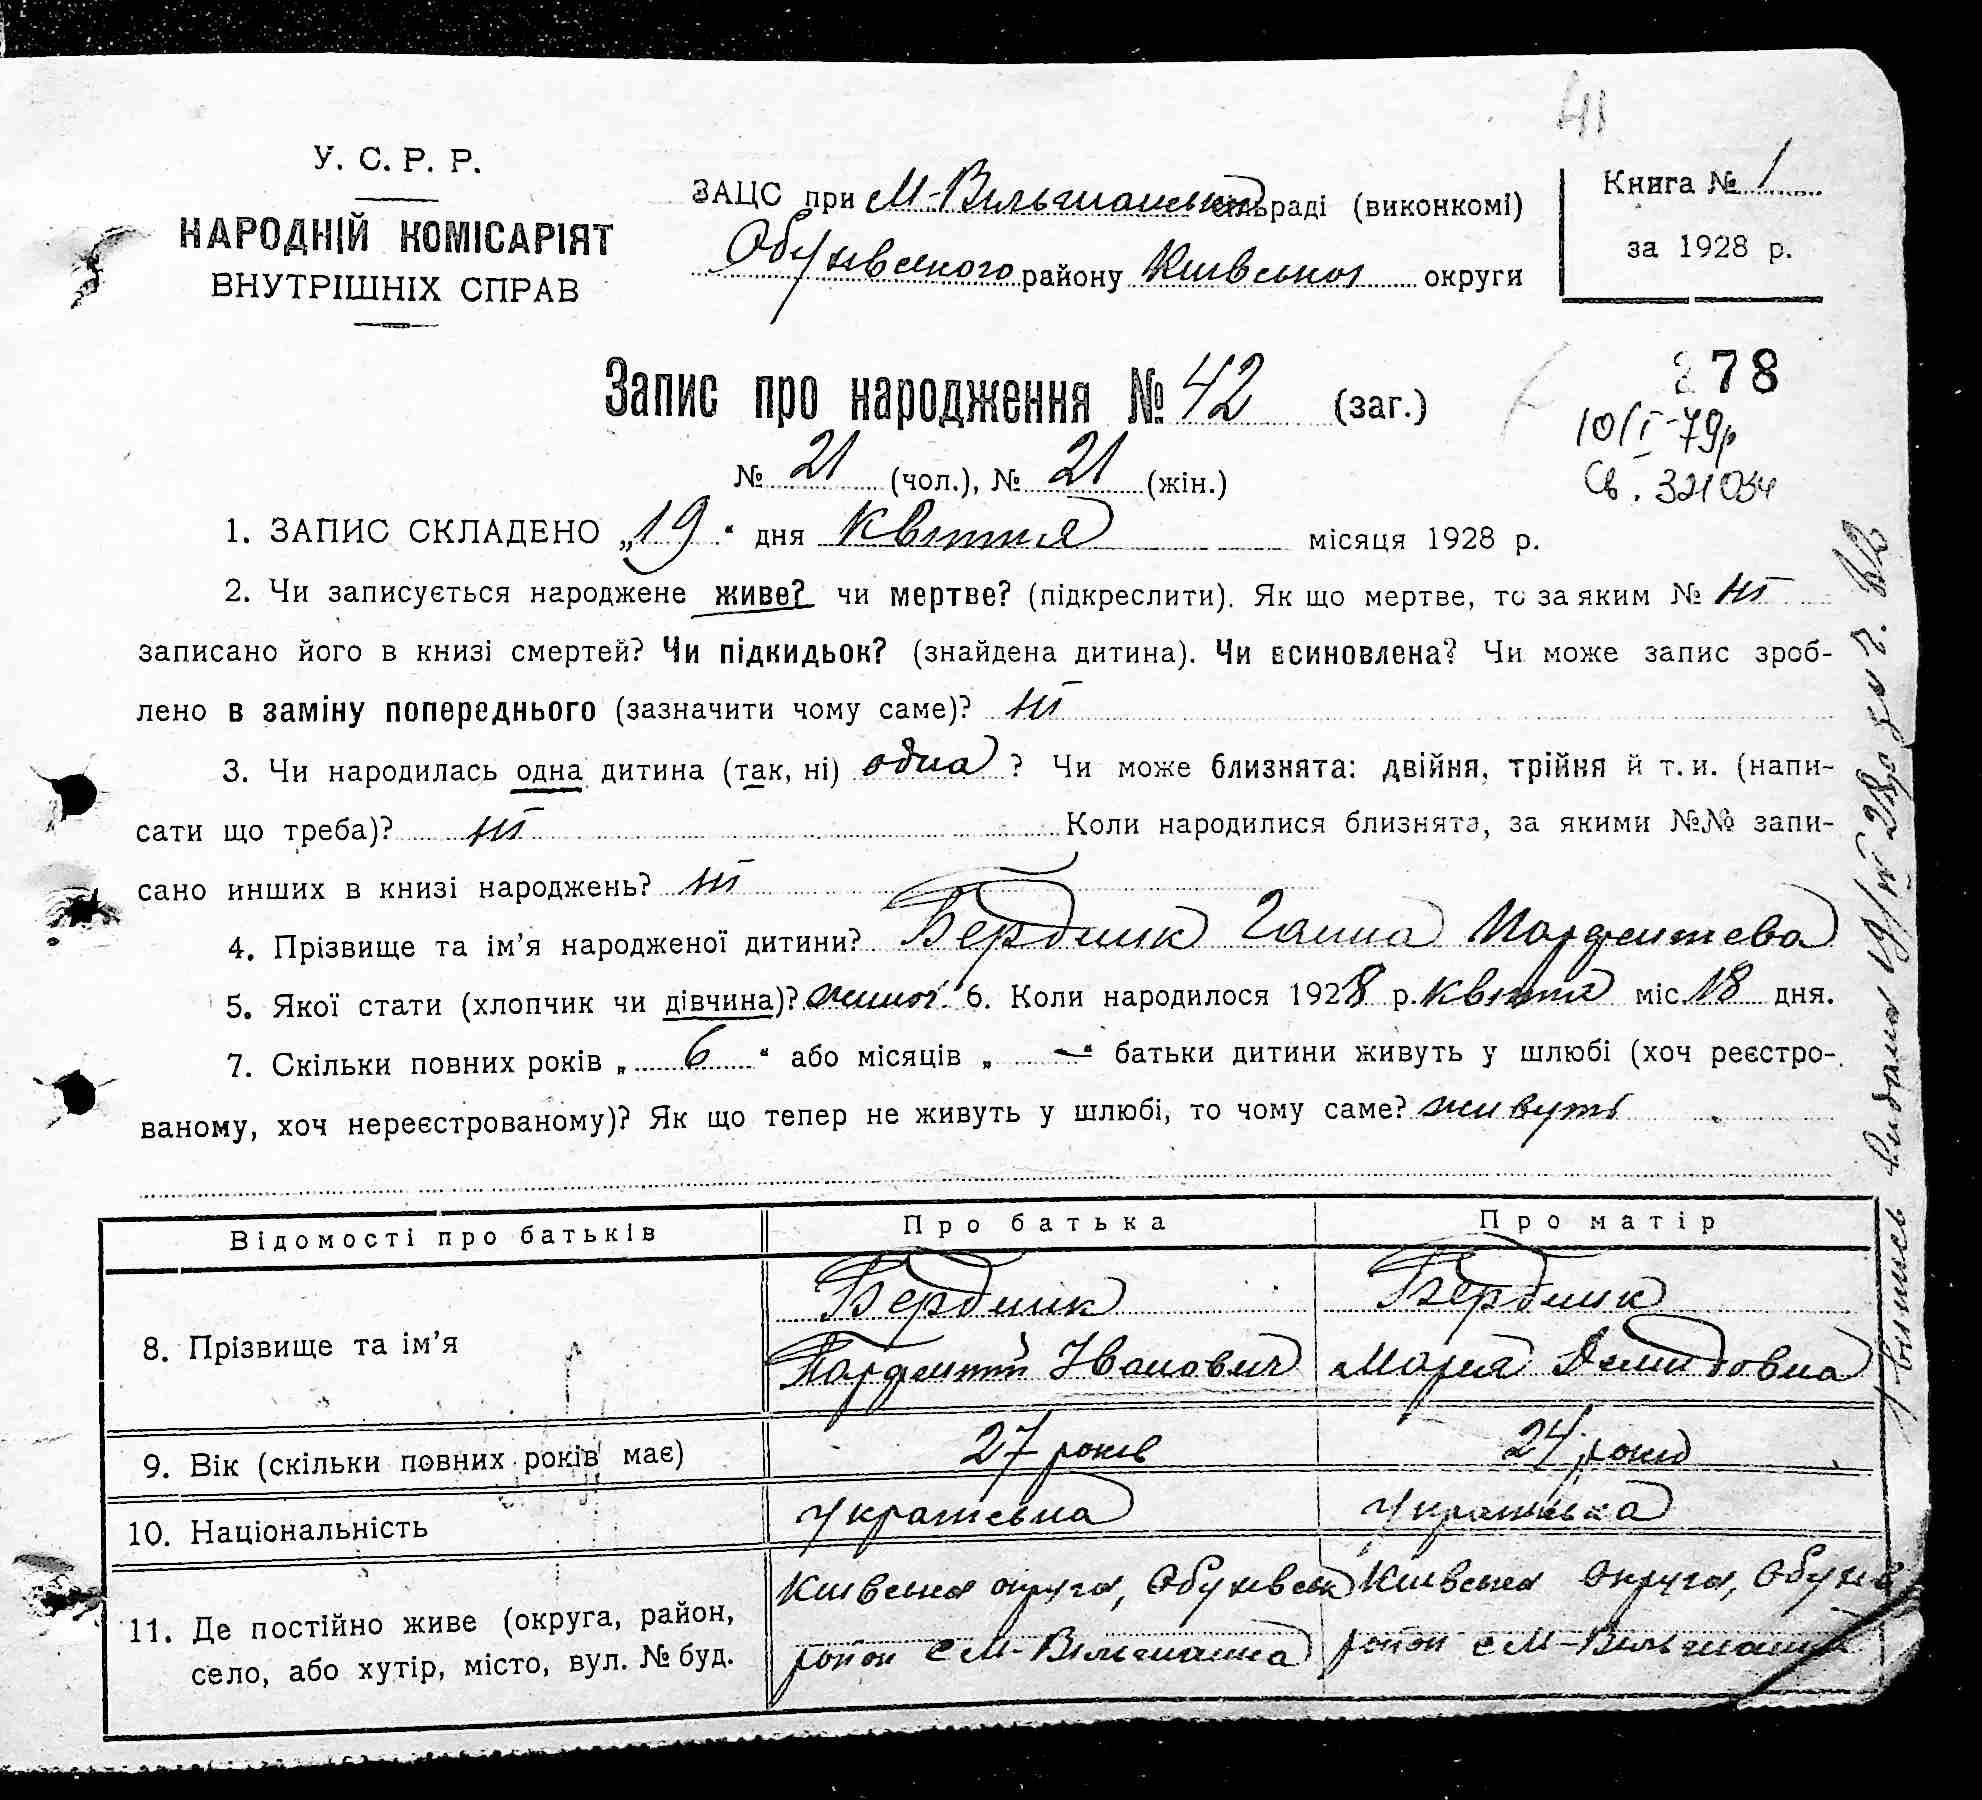 41
У. С. Р. Р.
НАРОДНІЙ КОМІСАРІЯТ
ВНУТРІШНІХ СПРАВ
ЗАЦС при М-Вільшанській сільраді (виконкомі)
Обухівського району Київської округи
Книга № 1
за 1928 р.
Запис про народження № 42 (заг.)
278
10/I-79р
Св. 321034
№ 21 (чол.), № 21 (жін.)
1. ЗАПИС СКЛАДЕНО „19“ дня Квітня місяця 1928 р.
2. Чи записується народжене живе? чи мертве? (підкреслити). Як що мертве, то за яким № ні
записано його в книзі смертей? Чи підкидьок? (знайдена дитина). Чи всиновлена? Чи може запис зроб-
лено в заміну попереднього (зазначити чому саме)? ні
3. Чи народилась одна дитина (так, ні) одна ? Чи може близнята: двійня, трійня й т. и. (напи-
сати що треба)? ні Коли народилися близнята, за якими №№ запи-
сано инших в книзі народжень? ні
4. Прізвище та ім’я народженої дитини? Бердник Ганна Парфентієва
5. Якої стати (хлопчик чи дівчина)? жіноч. 6. Коли народилося 1928 р. квітня міс. 18 дня.
7. Скільки повних років „ 6 “ або місяців „ — “ батьки дитини живуть у шлюбі (хоч реєстро-
ваному, хоч нереєстрованому)? Як що тепер не живуть у шлюбі, то чому саме? живуть
Відомості про батьків Про батька Про матір
8. Прізвище та ім’я
Бердник Бердник
Парфентій Іванович Мария Демидовна
9. Вік (скільки повних років має) 27 років 24 років
10. Національність Українська Українка
11. Де постійно живе (округа, район,
село, або хутір, місто, вул. № буд.
Київська округа, Обухівськ Київська округа, Обухів
район с М-Вільшанка район с М-Вільшанка
Витись видана 19/IV 28р за №